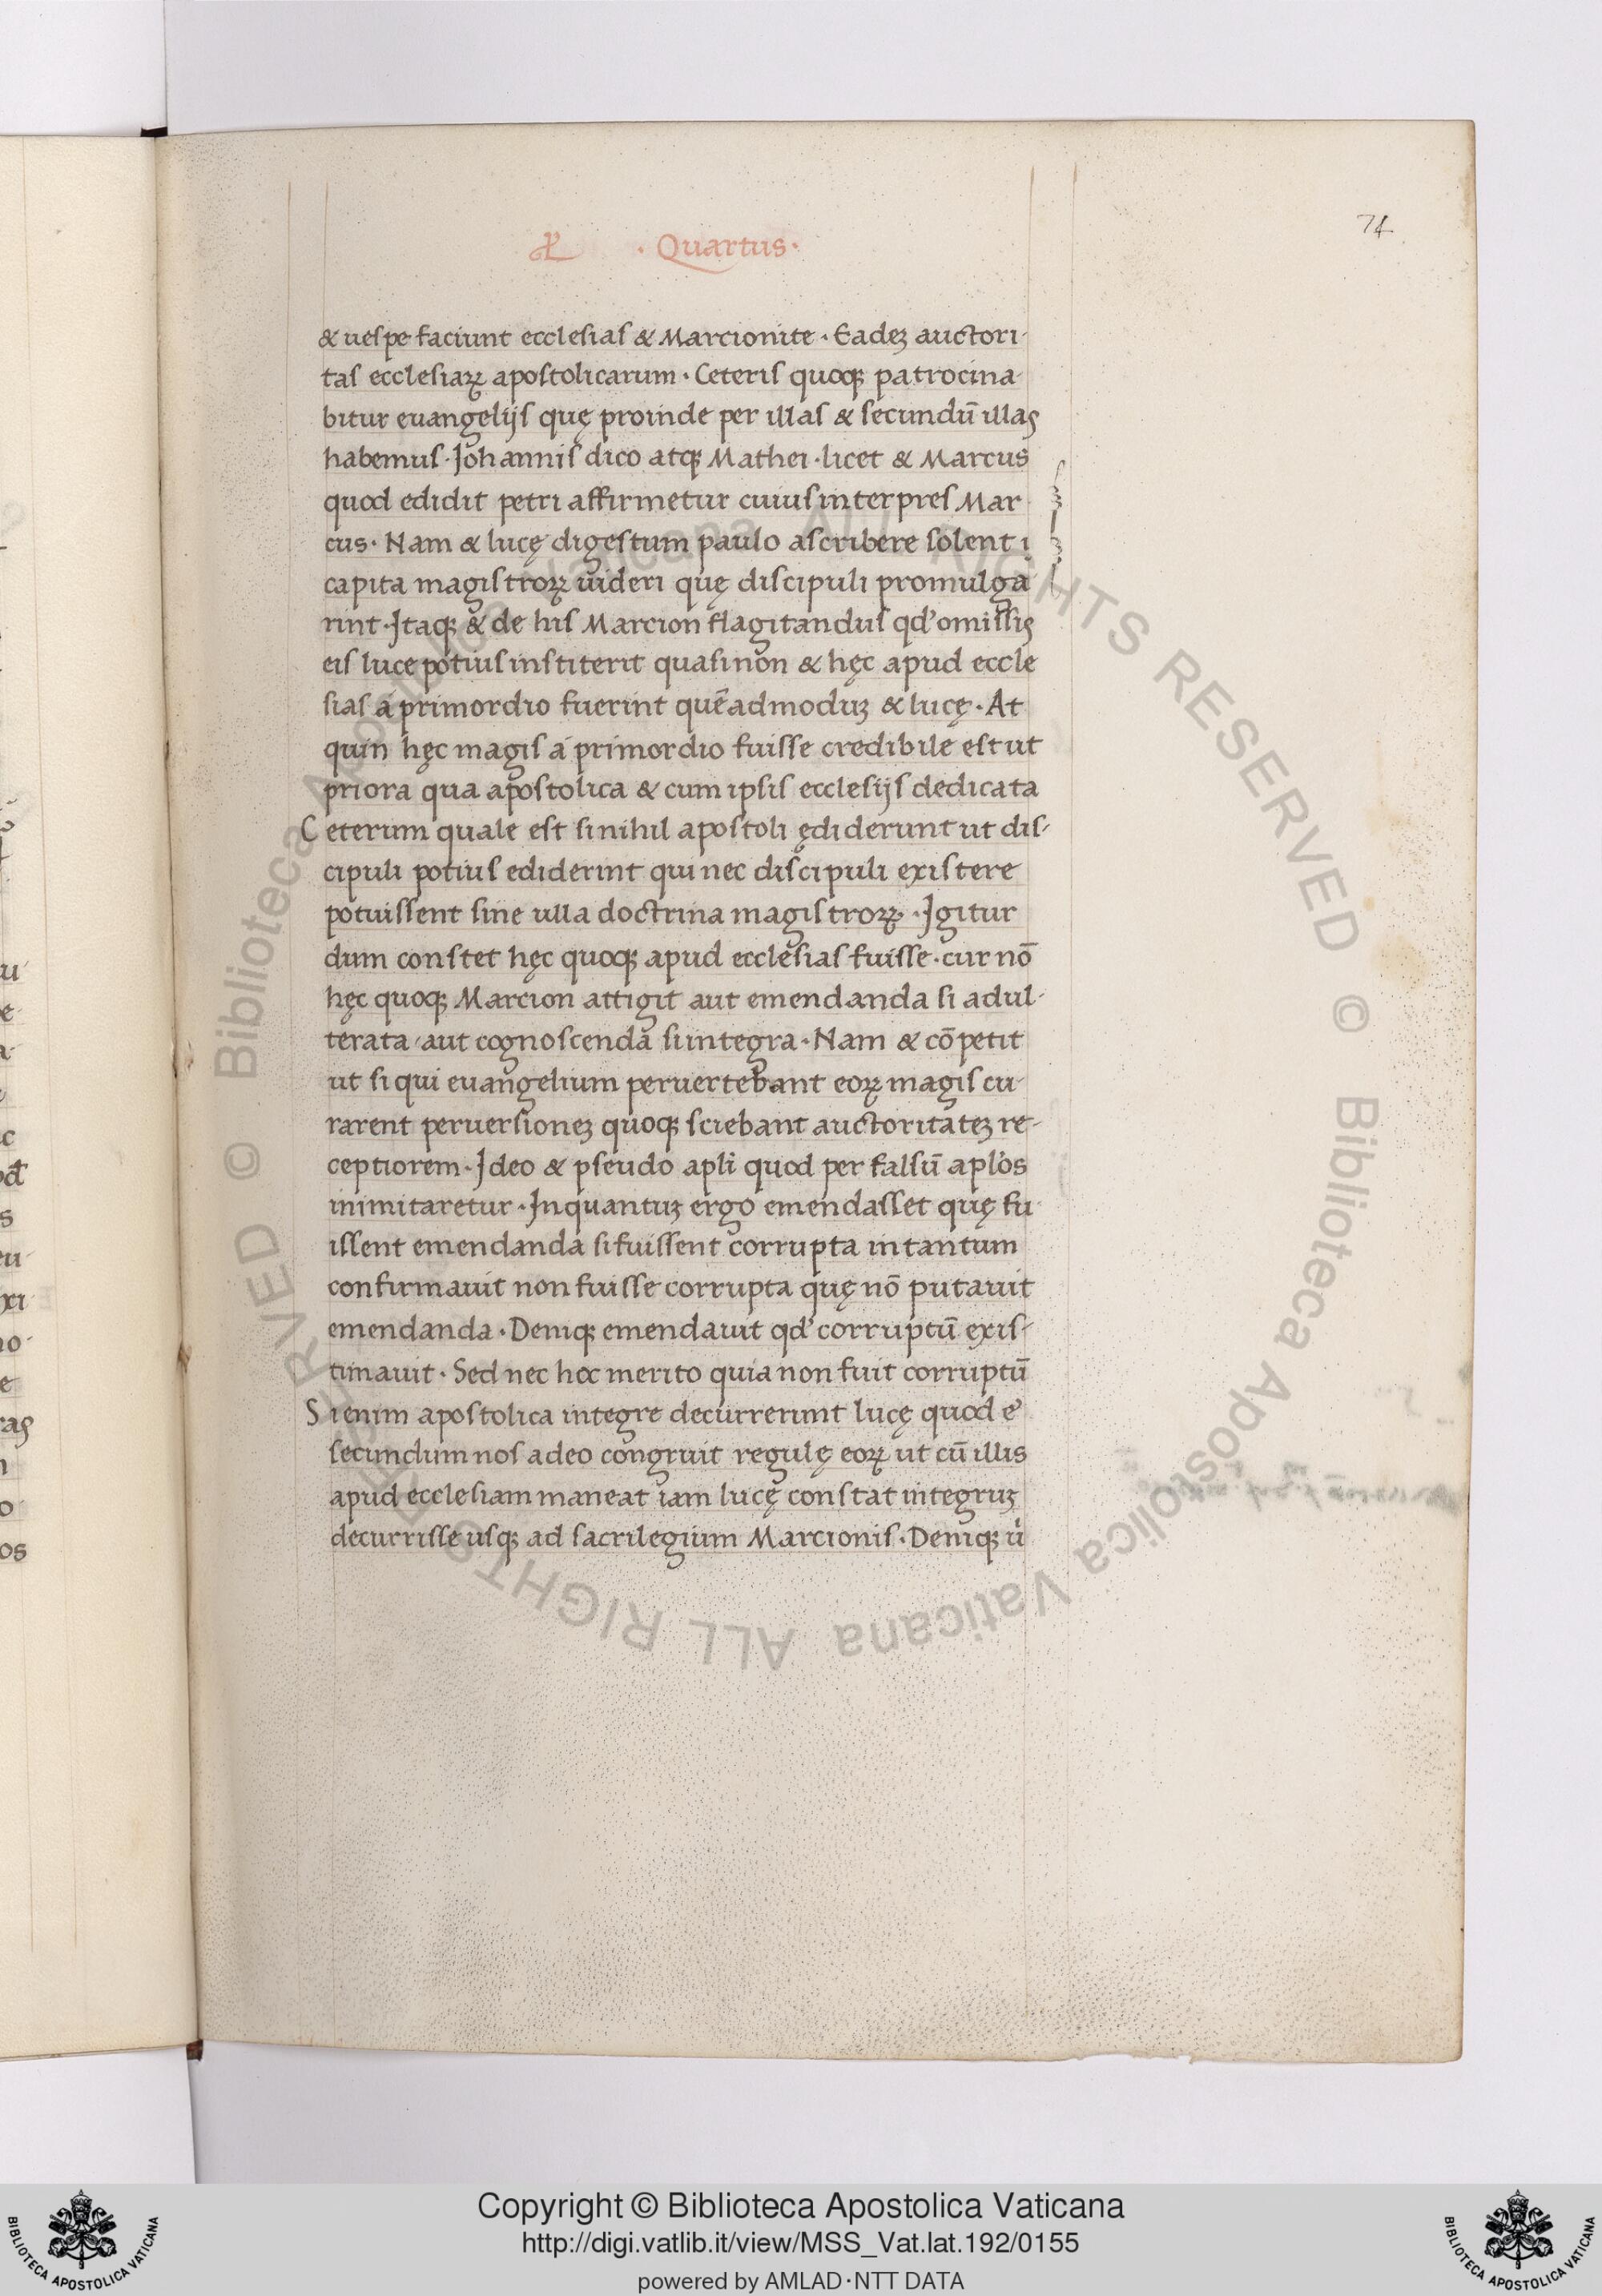 74
· Quartus ·
& uespe faciunt ecclesias & Marcionite · Eadeʒ auctori-
tas ecclesiaꝝ apostolicarum · Ceteris quoqꝫ patrocina-
bitur euangelijs quę proinde per illas & secundū illas
habemus · Johannis dico atqꝫ Mathei · licet & Marcus
quod edidit petri affirmetur cuius interpres Mar-
cus · Nam & lucę digestum paulo ascribere solent i
capita magistroꝝ uideri quę discipuli promulga
rint · Itaqꝫ & de his Marcion flagitandus qd' omissis
eis luce potius institerit quasi non & hęc apud eccle
sias a primordio fuerint quēadmoduʒ & lucę · At
quin hęc magis a primordio fuisse credibile est ut
priora qua apostolica & cum ipsis ecclesijs dedicata
Ceterum quale est si nihil apostoli ędiderunt ut dis-
cipuli potius ediderint qui nec discipuli existere
potuissent sine ulla doctrina magistroꝝ · Igitur
dum constet hęc quoqꝫ apud ecclesias fuisse · cur nō
hęc quoqꝫ Marcion attigit aut emendanda si adul-
terata aut cognoscenda si integra · Nam & cōpetit
ut si qui euangelium peruertebant eoꝝ magis cu-
rarent peruersioneʒ quoqꝫ sciebant auctoritateʒ re-
ceptiorem · Ideo & pseudo apli quod per falsū aplos
inimitaretur · Inquantuʒ ergo emendasset quę fu-
issent emendanda si fuissent corrupta in tantum
confirmauit non fuisse corrupta quę nō putauit
emendanda · Deniqꝫ emendauit qd' corruptū exis-
timauit · Sed nec hoc merito quia non fuit corruptū
Si enim apostolica integre decurrerunt lucę quod ē
secundum nos adeo congruit regulę eoꝝ ut cū illis
apud ecclesiam maneat iam lucę constat integruʒ
decurrisse usqꝫ ad sacrilegium Marcionis · Deniqꝫ u
© Biblioteca Apostolica Vaticana ALL RIGHTS RESERVED © Biblioteca Apostolica Vaticana ALL RIGHTS RESERVED
Copyright © Biblioteca Apostolica Vaticana
http://digi.vatlib.it/view/MSS_Vat.lat.192/0155
powered by AMLAD·NTT DATA
BIBLIOTECA APOSTOLICA VATICANA
BIBLIOTECA APOSTOLICA VATICANA